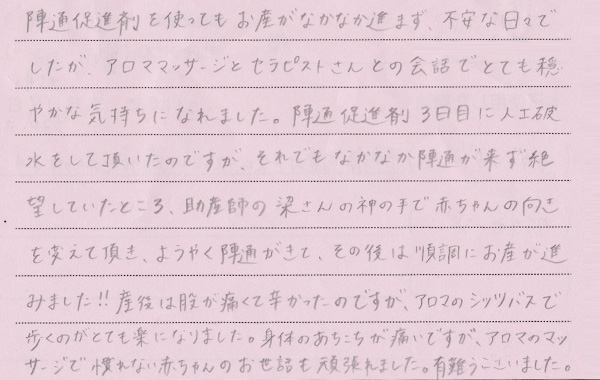 陣通促進剤を使ってもお産がなかなか進まず、不安な日々で
したが、アロママッサージとセラピストさんとの会話でとても穏
やかな気持ちになれました。陣通促進剤3日目に人工破
水をして頂いたのですが、それでもなかなか陣通が来ず絶
望していたところ、助産師の梁さんの神の手で赤ちゃんの向き
を変えて頂き、ようやく陣通がきて、その後は順調にお産が進
みました!!産後は股が痛くて辛かったのですが、アロマのシッツバスで
歩くのがとても楽になりました。身体のあちこちが痛いですが、アロマのマッ
サージで慣れない赤ちゃんのお世話も頑張れました。有難うございました。